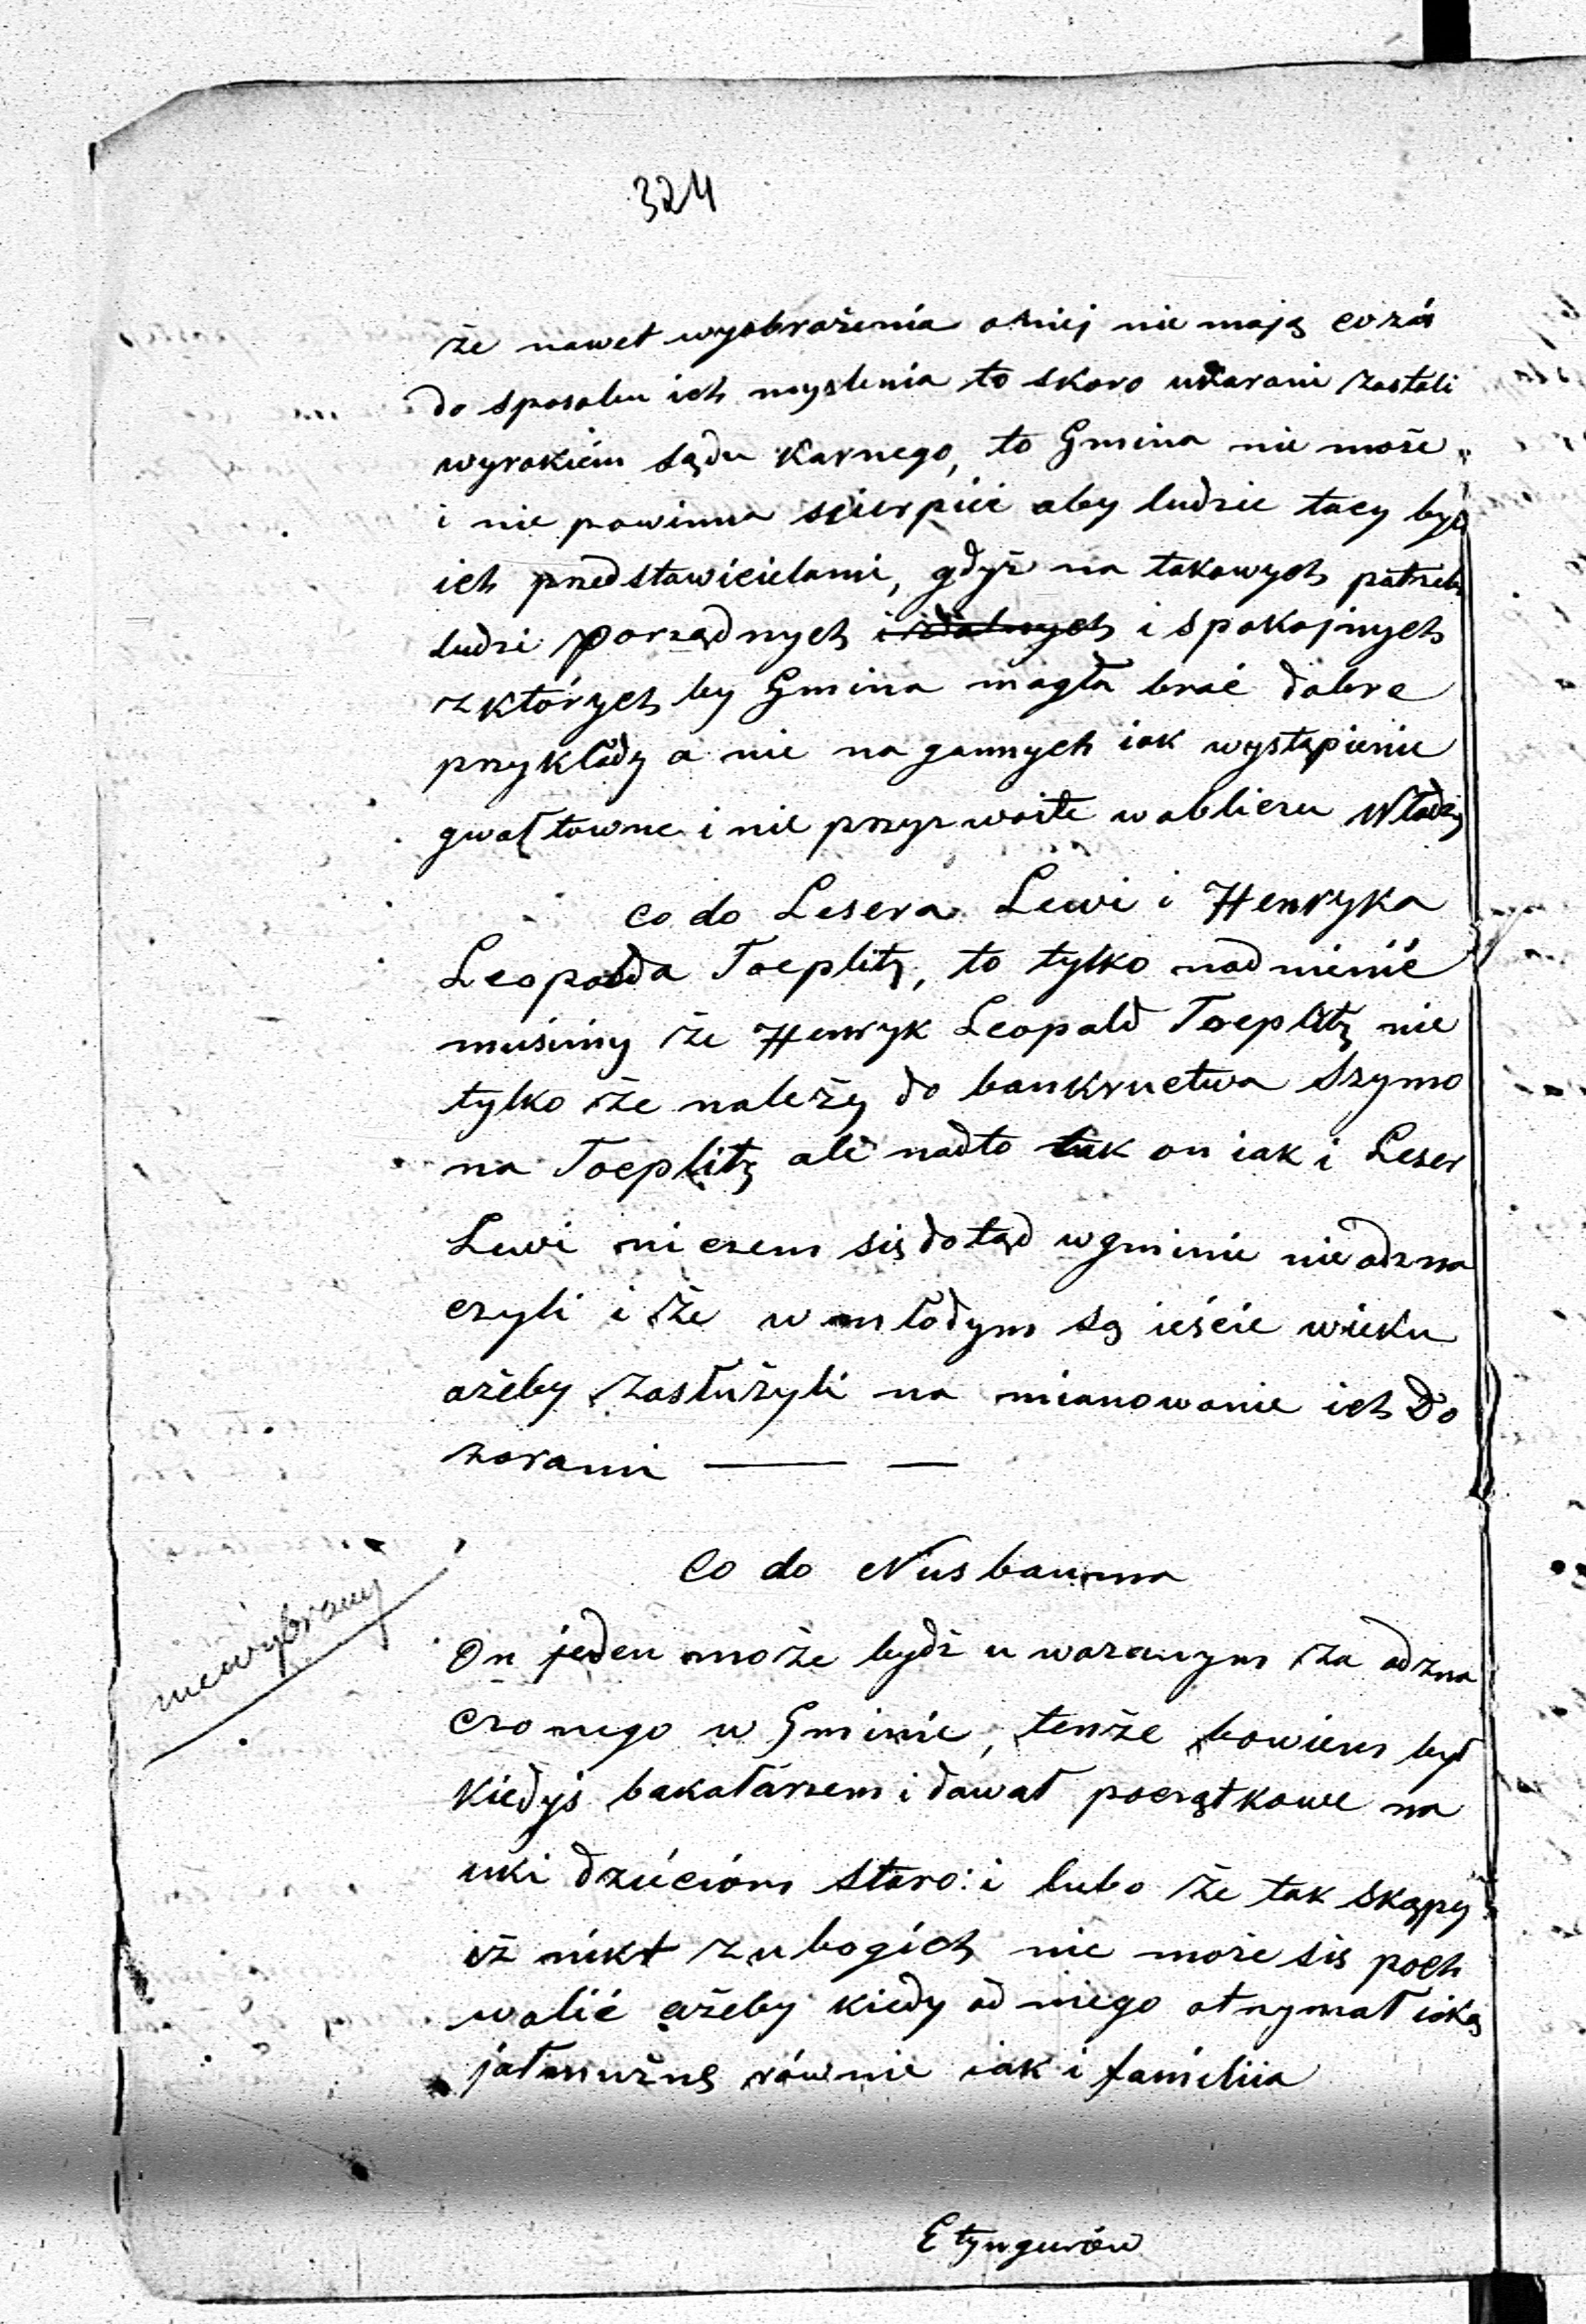 324
że nawet wyobrażenia o niej nie mają co zaś
do sposobu ich myslenia to skoro ukarani zostali
wyrokiem sądu Karnego, to Gmina nie może
i nie powinna scierpieć aby ludzie tacy byli
ich przedstawicielami, gdyż na takowych potrzeb
ludzi porządnych i zdatnych i spokojnych
z których by Gmina mogła brać dobre
przykłady a nie nagannych iak wystąpienie
gwałtowne i nie przyzwoite w obliczu Władzy
co do Lesera Lewi i Henryka
Leopolda Toeplitz, to tylko nadmienić
musimy że Henryk Leopold Toeplitz nie
tylko że należy do bankructwa Szymo
na Toeplitz ale nadto tak on iak i Leser
Lewi niczem się dotąd w gminie nie odzna
czyli i że w młodym są ieście wieku
ażeby zasłużyli na mianowanie ich Do
zorami — —
Co do Nusbauma
niewybrany
On jeden może bydź uważanym za odzna
czonego w Gminie, tenże bowiem był
kiedyś bakałarzem i dawał początkowe na
uki dziécióm Staro: i lubo że tak skąpy
iż nikt z ubogich nie może się poch
walić ażeby kiedy od niego otrzymał iaką
jałmużnę równie iak i familiia
Etyngerów